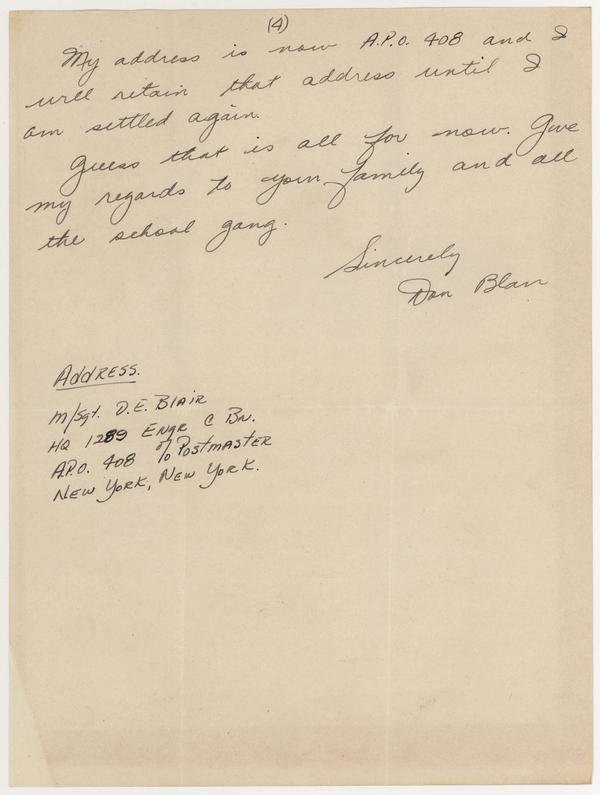 (4)
My address is now A.P.O. 408 and I
will retain that address until I
am settled again.
Guess that is all for now. Give
my regards to your family and all
the school gang.
Sincerely
Don Blair
ADDRESS.
M/Sgt. D.E. BLAIR
HQ 1289 ENGR C BN.
A.P.O. 408 % POSTMASTER
NEW YORK, NEW YORK.